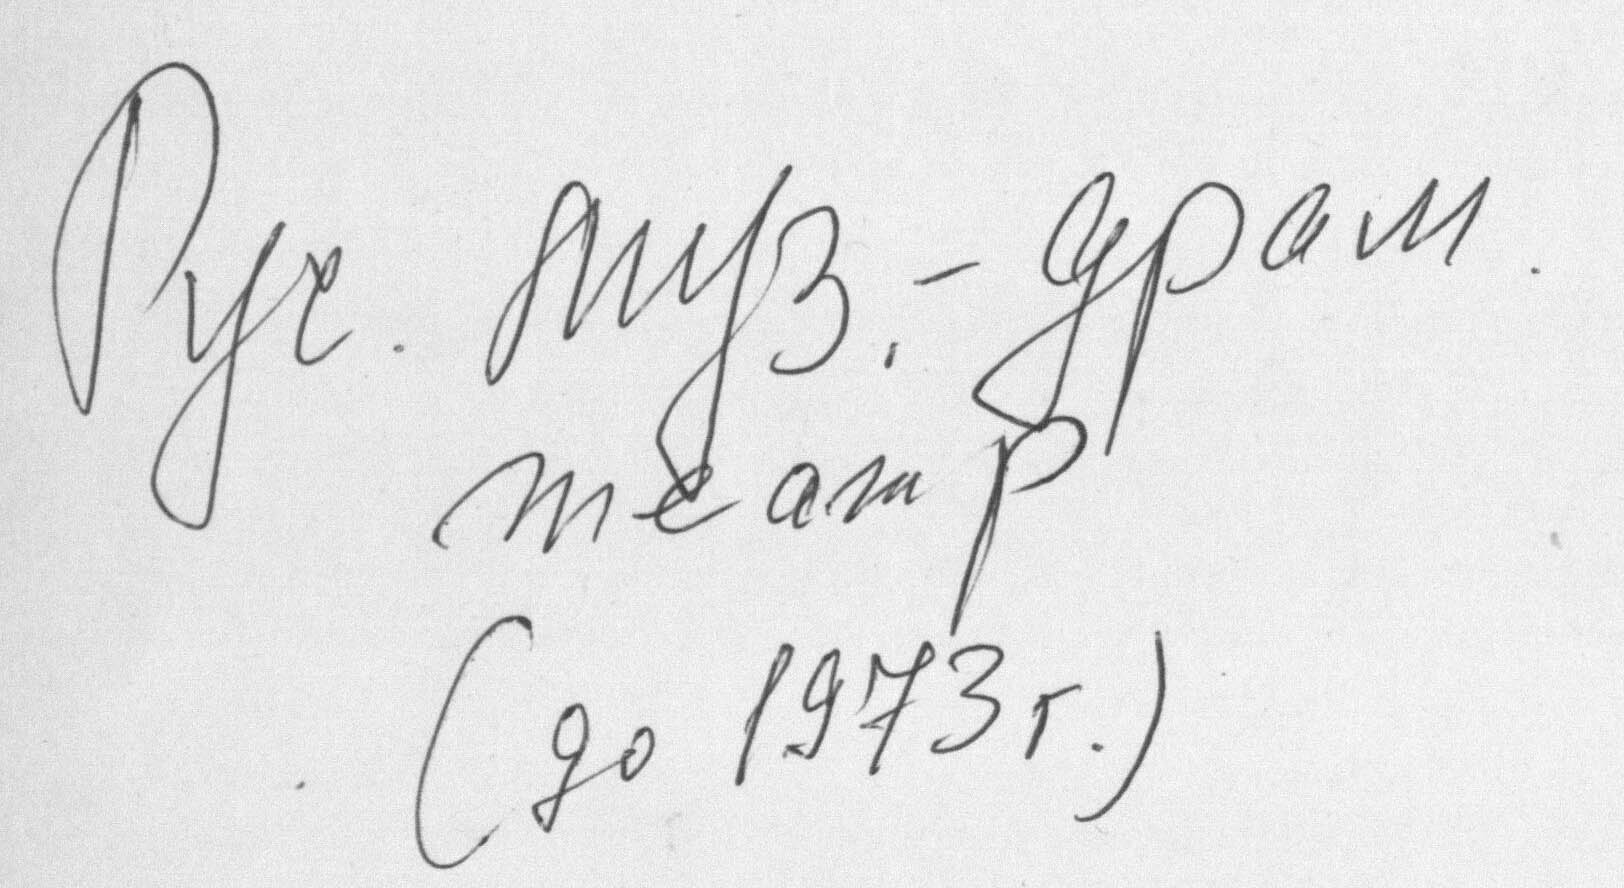 Рус. муз.-драм.
театр
(до 1973 г.)